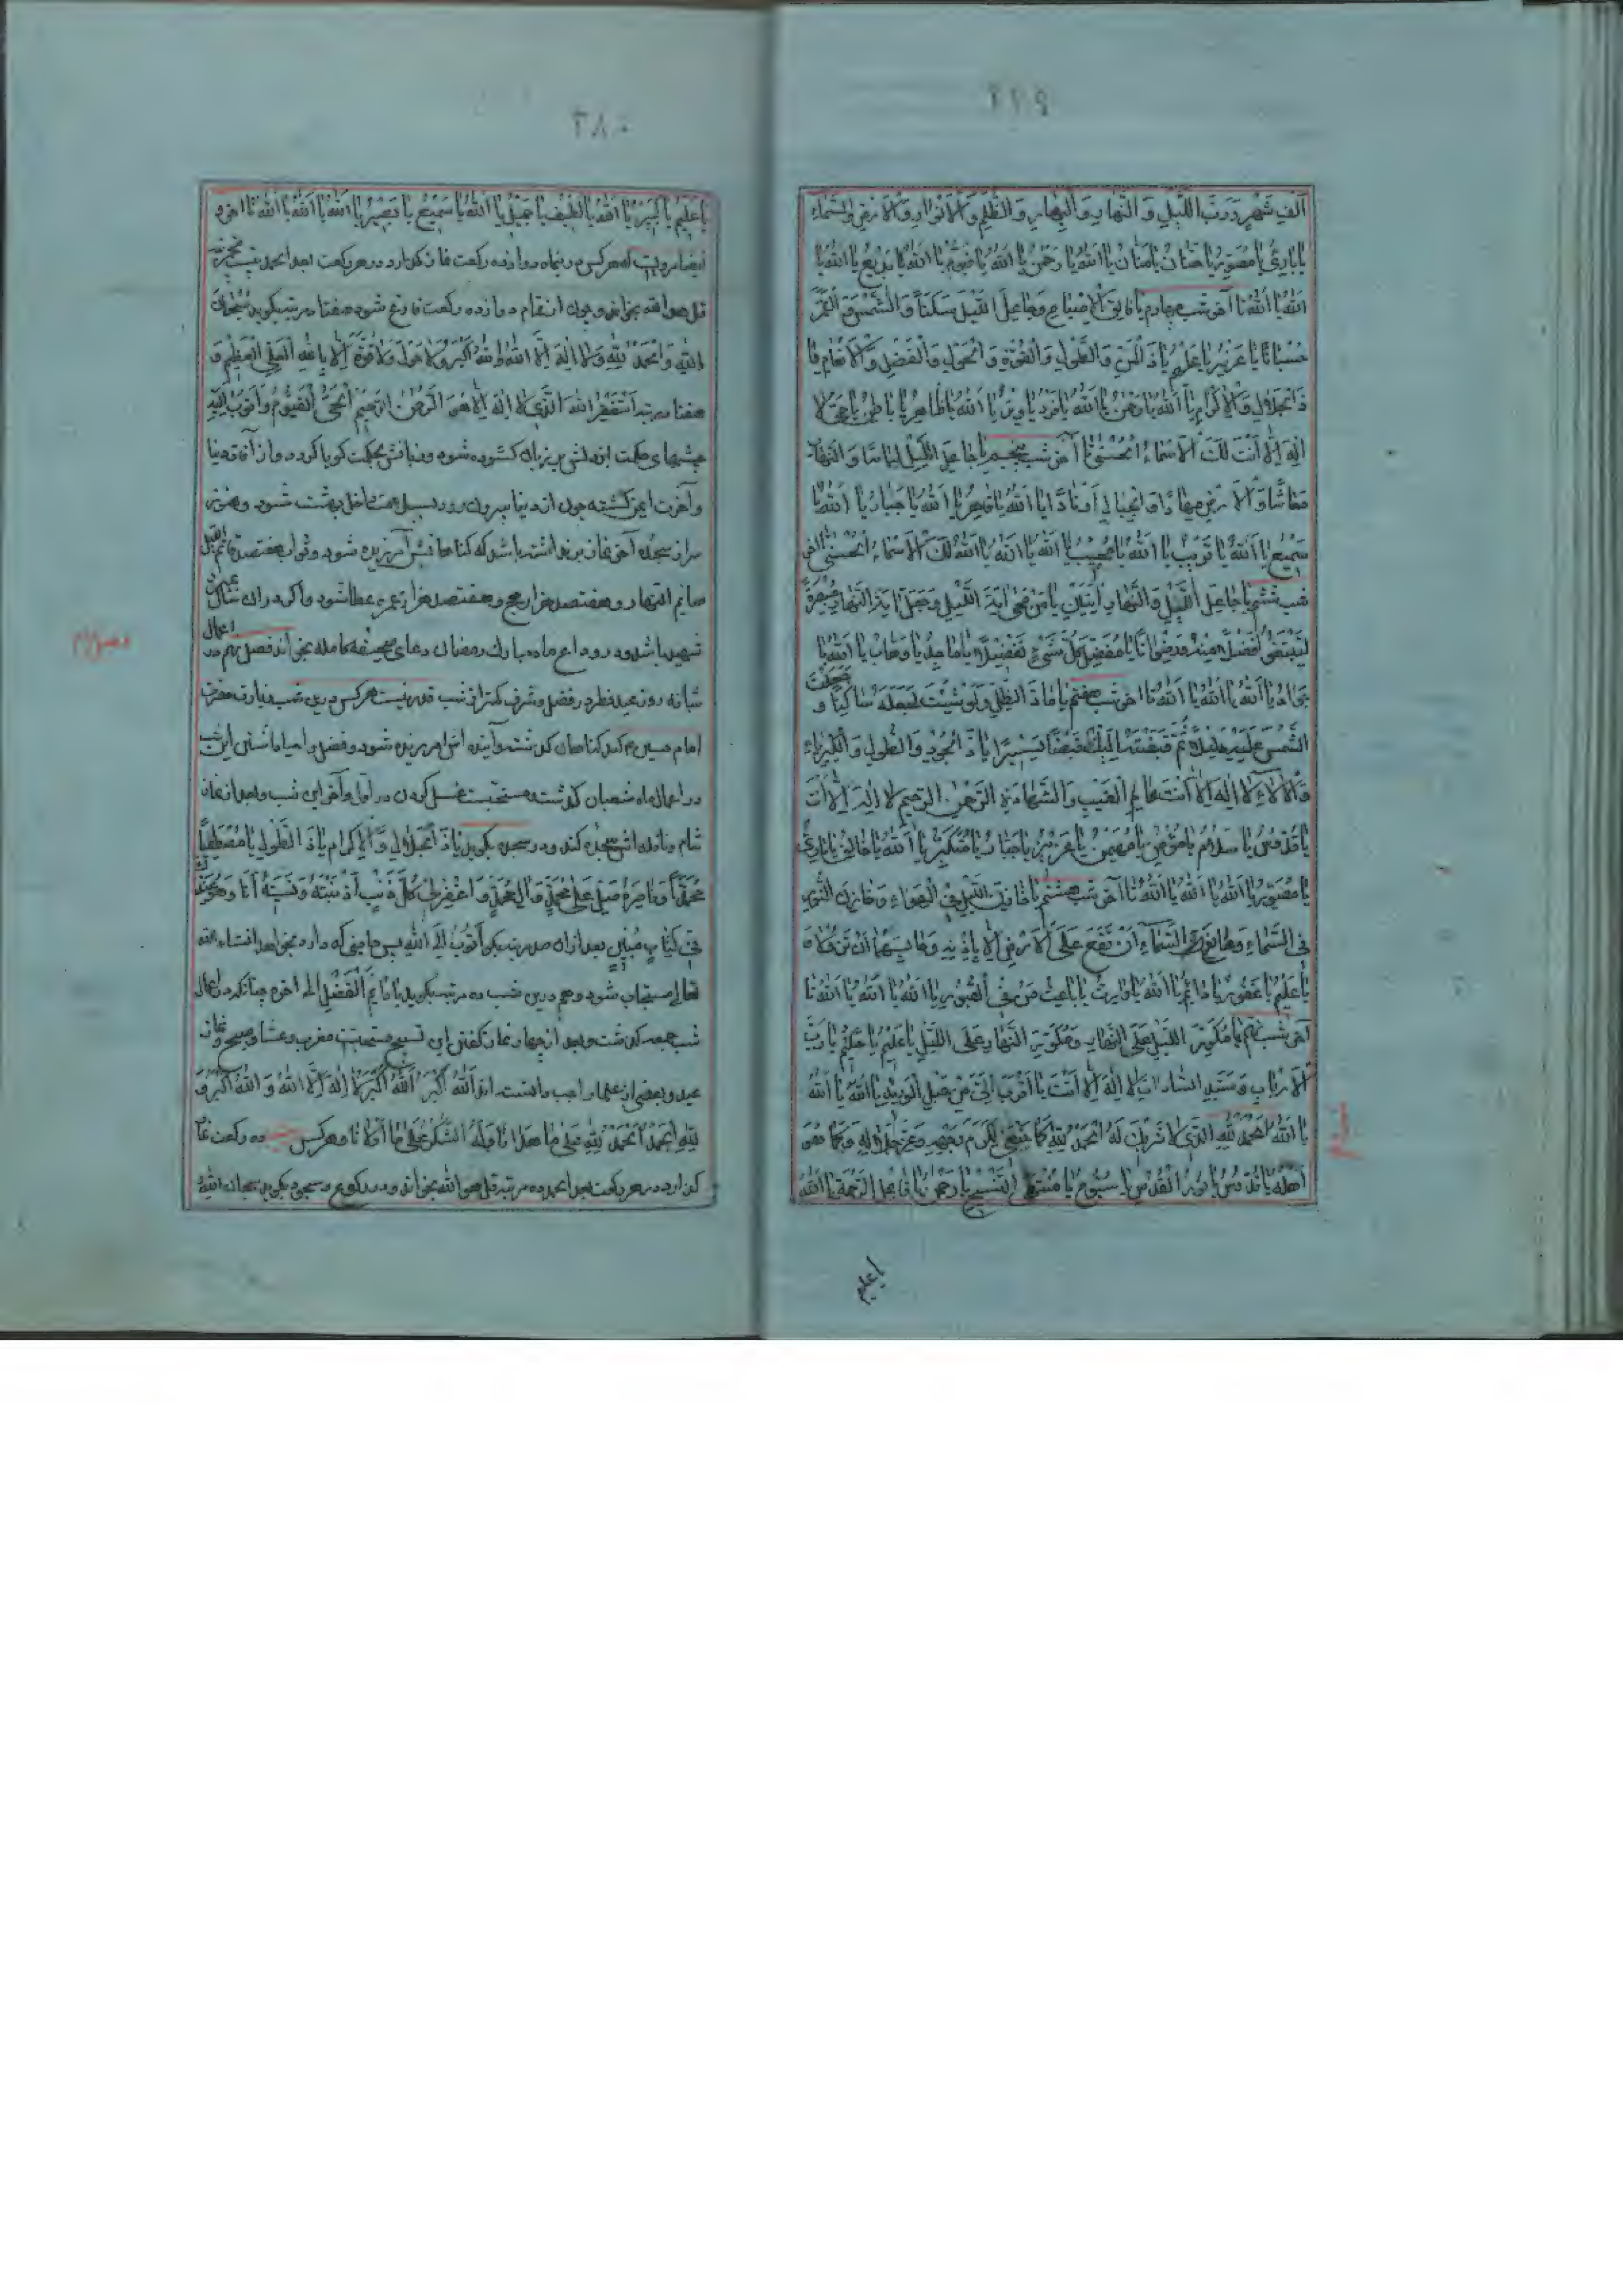 اَلْفِ شَهْرٍ وَرَبَّ اللَّيْلِ وَالنَّهَارِ وَالْبِحَارِ وَالظُّلَمِ وَالْاَنْوَارِ وَالْاَرْضِ وَالسَّمَاءِ
يَا بَارِئُ يَا مُصَوِّرُ يَا حَنَّانُ يَا مَنَّانُ يَا اَللهُ يَا رَحْمٰنُ يَا اَللهُ يَا قَيُّومُ يَا اَللهُ يَا بَدِيعُ يَا اَللهُ يَا
اَللهُ يَا اَللهُ تا آخر شب چهارم يَا فَالِقَ الْاِصْبَاحِ وَجَاعِلَ اللَّيْلِ سَكَنًا وَالشَّمْسِ وَالْقَمَرِ
حُسْبَانًا يَا عَزِيزُ يَا عَلِيمُ يَا ذَا الْمَنِّ وَالطَّوْلِ وَالْقُوَّةِ وَالْحَوْلِ وَالْفَضْلِ وَالْاِنْعَامِ يَا
ذَا الْجَلَالِ وَالْاِكْرَامِ يَا اَللهُ يَا رَحْمٰنُ يَا اَللهُ يَا فَرْدُ يَا وِتْرُ يَا اَللهُ يَا ظَاهِرُ يَا بَاطِنُ يَا حَيُّ لَا
اِلٰهَ اِلَّا اَنْتَ لَكَ الْاَسْمَاءُ الْحُسْنٰى تا آخر شب پنجم يَا جَاعِلَ اللَّيْلِ لِبَاسًا وَالنَّهَارِ
مَعَاشًا وَالْاَرْضِ مِهَادًا وَالْجِبَالِ اَوْتَادًا يَا اَللهُ يَا قَاهِرُ يَا اَللهُ يَا جَبَّارُ يَا اَللهُ يَا
سَمِيعُ يَا اَللهُ يَا قَرِيبُ يَا اَللهُ يَا مُجِيبُ يَا اَللهُ يَا اَللهُ يَا اَللهُ لَكَ الْاَسْمَاءُ الْحُسْنٰى تا آخر
شب ششم يَا جَاعِلَ اللَّيْلِ وَالنَّهَارِ اٰيَتَيْنِ يَا مَنْ مَحٰى اٰيَةَ اللَّيْلِ وَجَعَلَ اٰيَةَ النَّهَارِ مُبْصِرَةً
لِيَبْتَغُوا فَضْلًا مِنْهُ وَرِضْوَانًا يَا مُفَصِّلَ كُلِّ شَيْءٍ تَفْصِيلًا يَا مَاجِدُ يَا وَهَّابُ يَا اَللهُ يَا
جَوَادُ يَا اَللهُ يَا اَللهُ يَا اَللهُ تا آخر شب هفتم يَا مَادَّ الظِّلِّ وَلَوْ شِئْتَ لَجَعَلْتَهُ سَاكِنًا وَ جَعَلْتَ
الشَّمْسَ عَلَيْهِ دَلِيلًا ثُمَّ قَبَضْتَهُ اِلَيْكَ قَبْضًا يَسِيرًا يَا ذَا الْجُودِ وَالطَّوْلِ وَالْكِبْرِيَاءِ
وَالْاٰلَاءِ لَا اِلٰهَ اِلَّا اَنْتَ عَالِمُ الْغَيْبِ وَالشَّهَادَةِ الرَّحْمٰنُ الرَّحِيمُ لَا اِلٰهَ اِلَّا اَنْتَ
يَا قُدُّوسُ يَا سَلَامُ يَا مُؤْمِنُ يَا مُهَيْمِنُ يَا عَزِيزُ يَا جَبَّارُ يَا مُتَكَبِّرُ يَا اَللهُ يَا خَالِقُ يَا بَارِئُ
يَا مُصَوِّرُ يَا اَللهُ يَا اَللهُ يَا اَللهُ تا آخر شب هشتم يَا خَازِنَ اللَّيْلِ فِي الْهَوَاءِ وَخَازِنَ النُّورِ
فِي السَّمَاءِ وَمَانِعَ السَّمَاءِ اَنْ تَقَعَ عَلَى الْاَرْضِ اِلَّا بِاِذْنِهِ وَحَابِسَهُمَا اَنْ تَزُولَا
يَا عَلِيمُ يَا غَفُورُ يَا دَائِمُ يَا اَللهُ يَا وَارِثُ يَا بَاعِثَ مَنْ فِي الْقُبُورِ يَا اَللهُ يَا اَللهُ يَا اَللهُ تا
آخر شب نهم يَا مُكَوِّرَ اللَّيْلِ عَلَى النَّهَارِ وَمُكَوِّرَ النَّهَارِ عَلَى اللَّيْلِ يَا عَلِيمُ يَا حَكِيمُ يَا رَبَّ
الْاَرْبَابِ وَسَيِّدَ السَّادَاتِ لَا اِلٰهَ اِلَّا اَنْتَ يَا اَقْرَبَ اِلَيَّ مِنْ حَبْلِ الْوَرِيدِ يَا اَللهُ يَا اَللهُ
يَا اَللهُ اَلْحَمْدُ لِلّٰهِ الَّذِي لَا شَرِيكَ لَهُ اَلْحَمْدُ لِلّٰهِ كَمَا يَنْبَغِي لِكَرَمِ وَجْهِهِ وَعِزِّ جَلَالِهِ وَكَمَا هُوَ
اَهْلُهُ يَا قُدُّوسُ يَا نُورَ الْقُدْسِ يَا سُبُّوحُ يَا مُنْتَهَى التَّسْبِيحِ يَا رَحْمٰنُ يَا فَاعِلَ الرَّحْمَةِ يَا اَللهُ
يا عليم
٢٨٠
يَا عَلِيمُ يَا كَبِيرُ يَا اَللهُ يَا لَطِيفُ يَا جَلِيلُ يَا اَللهُ يَا سَمِيعُ يَا بَصِيرُ يَا اَللهُ يَا اَللهُ يَا اَللهُ تا آخر و
ايضا مرويست كه هركس درينماه دوازده ركعت نماز بكذارد در هر ركعت بعد از حمد بيست
قل هو الله بخواند و چون از تمام دوازده ركعت فارغ شود هفتاد مرتبه بكويد سُبْحَانَ
اللهِ وَالْحَمْدُ لِلّٰهِ وَلَا اِلٰهَ اِلَّا اللهُ وَاللهُ اَكْبَرُ وَلَا حَوْلَ وَلَا قُوَّةَ اِلَّا بِاللهِ الْعَلِيِّ الْعَظِيمِ وَ
هفتاد مرتبه اَسْتَغْفِرُ اللهَ الَّذِي لَا اِلٰهَ اِلَّا هُوَ الرَّحْمٰنُ الرَّحِيمُ الْحَيُّ الْقَيُّومُ وَاَتُوبُ اِلَيْهِ
چشمهاى حكمت از دلش بر زبان كشوده شود و زبانش بحكمت كويا كردد و از آفات دنيا
و آخرت ايمن كشته چون از دنيا بيرون رود داخل بهشت شود و هنوز
سر از سجده آخر نماز برنداشته باشد كه كناهانش آمرزيده شود و ثواب هفتصد قائم الليل
صائم النهار و هفتصد هزار حج و هفتصد هزار عمره عطا شود و اكر در ان سال بميرد
شهيد باشد و در وداع ماه مبارك رمضان دعاى صحيفه كامله بخواند فصل نهم در اعمال
شبانه روز عيد فطر در فضل و شرف كمتر از شب قدر نيست هركس درين شب زيارت حضرت
امام حسين ع كند كناهان كذشته و آينده اش آمرزيده شود و فضل و احيا داشتن اين شب
در اعمال ماه شعبان كذشت و مستحبست غسل كردن در اول و آخر اين شب و بعد از نماز
شام و نافله اش سجده كند و در سجده بكويد يَا ذَا الْجَلَالِ وَالْاِكْرَامِ يَا ذَا الطَّوْلِ يَا مُصْطَفِيًا
مُحَمَّدًا وَنَاصِرَهُ صَلِّ عَلٰى مُحَمَّدٍ وَاٰلِ مُحَمَّدٍ وَاغْفِرْ لِي كُلَّ ذَنْبٍ اَذْنَبْتُهُ وَنَسِيتُهُ اَنَا وَهُوَ عِنْدَكَ
فِي كِتَابٍ مُبِينٍ بعد از ان صد مرتبه بكو اَتُوبُ اِلَى اللهِ پس حاجتى كه دارد بخواهد انشاء الله
تعالى مستجاب شود و هم درين شب ده مرتبه بكويد يَا دَائِمَ الْفَضْلِ الى آخره چنانكه در اعمال
شب جمعه كذشت و بعد از چهار نماز كفتن اين تسبيح مستحبست مغرب و عشا و صبح و نماز
عيد و بعضى از علما واجب دانسته اند اَللهُ اَكْبَرُ اَللهُ اَكْبَرُ لَا اِلٰهَ اِلَّا اللهُ وَاللهُ اَكْبَرُ وَ
لِلّٰهِ الْحَمْدُ اَلْحَمْدُ لِلّٰهِ عَلٰى مَا هَدَانَا وَلَهُ الشُّكْرُ عَلٰى مَا اَوْلَانَا و هركس ده ركعت نماز
كذارد در هر ركعت بعد الحمد ده مرتبه قل هو الله بخواند و در ركوع و سجود بكويد سبحان الله